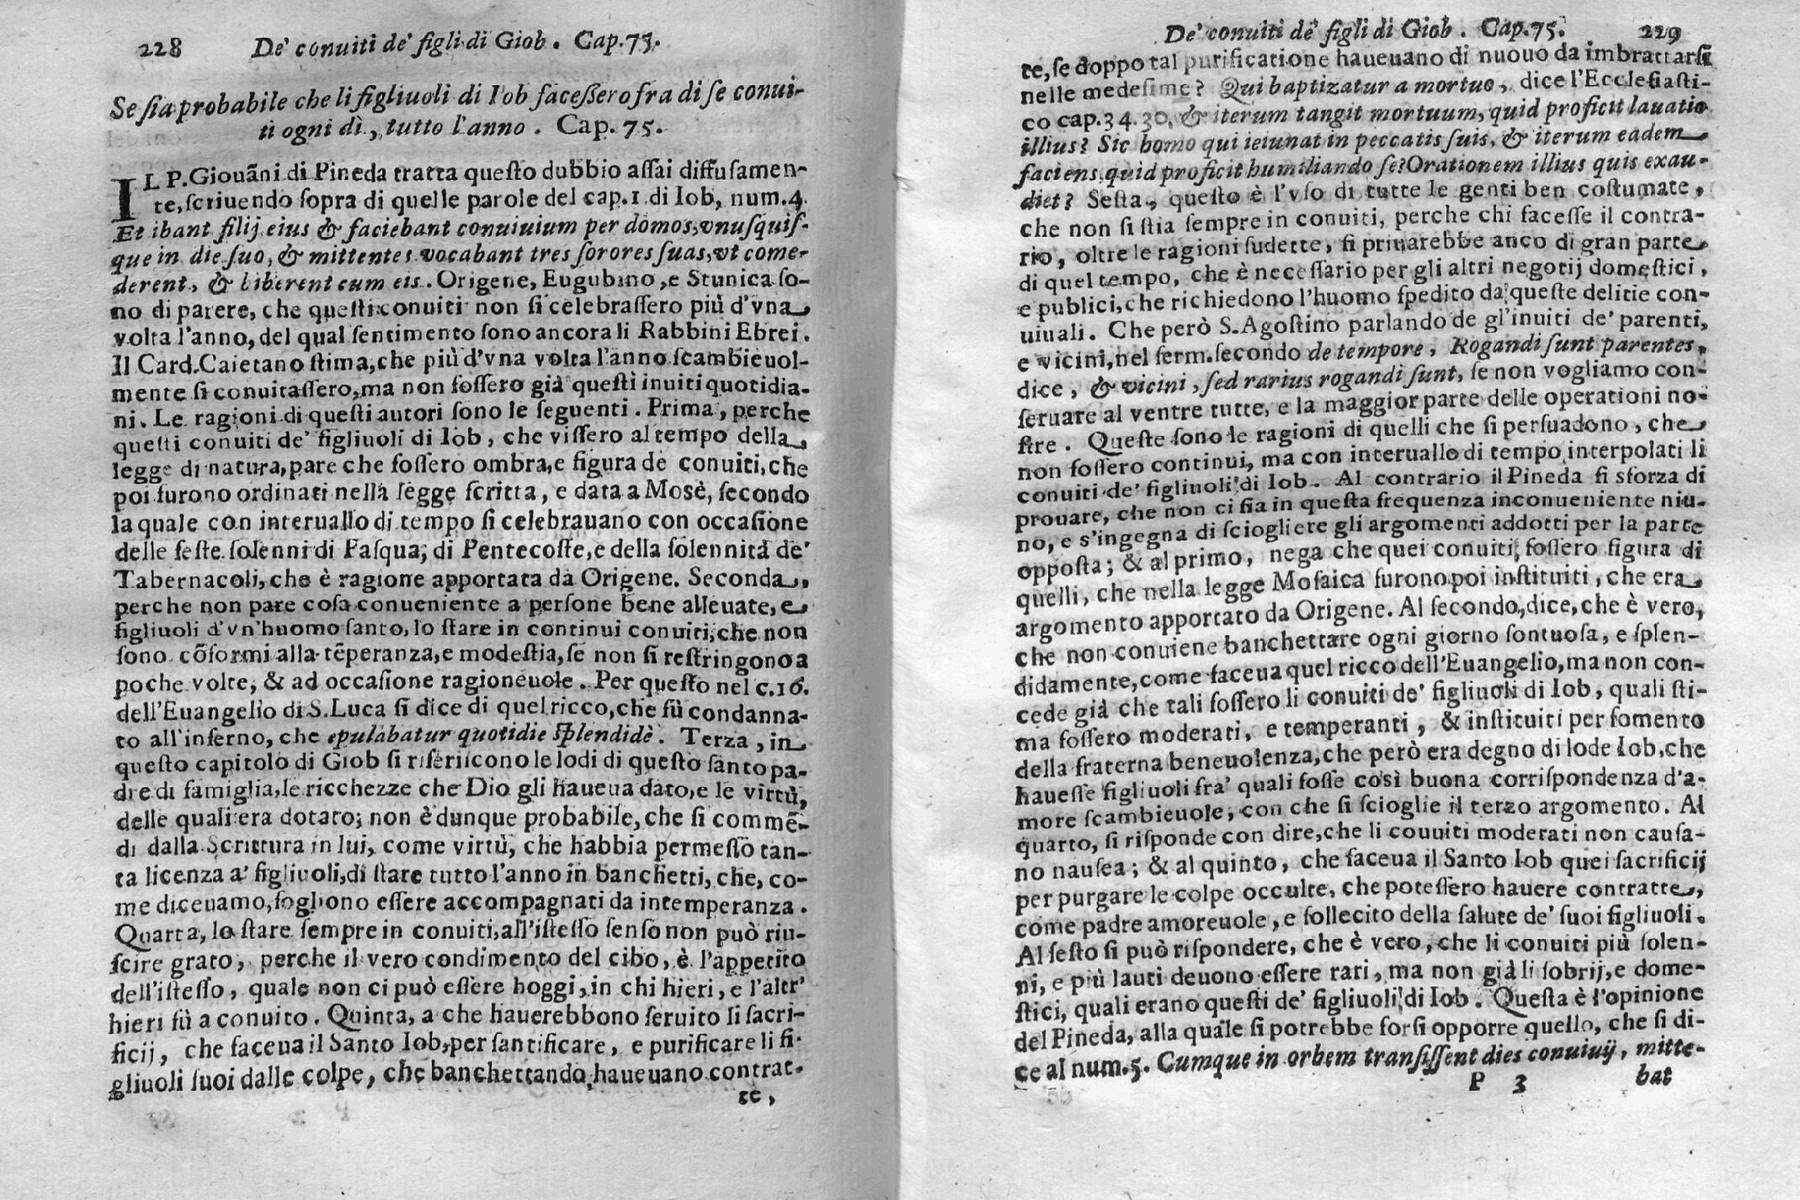 228 De' conuiti de' figli di Giob. Cap.75.
Se sia probabile che li figliuoli di Iob facessero fra di se conui-
ti ogni dì, tutto l'anno. Cap. 75.
IL P. Giouãni di Pineda tratta questo dubbio assai diffusamen-
te, scriuendo sopra di quelle parole del cap.1. di Iob, num.4.
Et ibant filij eius & faciebant conuiuium per domos, vnusquis-
que in die suo, & mittentes vocabant tres sorores suas, vt come-
derent, & biberent cum eis. Origene, Eugubino, e Stunica so-
no di parere, che questi conuiti non si celebrassero più d'vna
volta l'anno, del qual sentimento sono ancora li Rabbini Ebrei.
Il Card. Caietano stima, che più d'vna volta l'anno scambieuol-
mente si conuitassero, ma non fossero già questi inuiti quotidia-
ni. Le ragioni di questi autori sono le seguenti. Prima, perche
questi conuiti de' figliuoli di Iob, che vissero al tempo della
legge di natura, pare che fossero ombra, e figura de conuiti, che
poi furono ordinati nella legge scritta, e data a Mosè, secondo
la quale con interuallo di tempo si celebrauano con occasione
delle feste solenni di Pasqua, di Pentecoste, e della solennità de'
Tabernacoli, che è ragione apportata da Origene. Seconda,
perche non pare cosa conueniente a persone bene alleuate, e
figliuoli d'vn'huomo santo, lo stare in continui conuiti, che non
sono cõformi alla tẽperanza, e modestia, se non si restringono a
poche volte, & ad occasione ragioneuole. Per questo nel c.16.
dell'Euangelio di S. Luca si dice di quel ricco, che fù condanna-
to all'inferno, che epulabatur quotidie splendidè. Terza, in
questo capitolo di Giob si riferiscono le lodi di questo santo pa-
dre di famiglia, le ricchezze che Dio gli haueua dato, e le virtù,
delle quali era dotato; non è dunque probabile, che si commẽ-
di dalla Scrittura in lui, come virtù, che habbia permesso tan-
ta licenza a' figliuoli, di stare tutto l'anno in banchetti, che, co-
me diceuamo, sogliono essere accompagnati da intemperanza.
Quarta, lo stare sempre in conuiti, all'istesso senso non può riu-
scire grato, perche il vero condimento del cibo, è l'appetito
dell'istesso, quale non ci può essere hoggi, in chi hieri, e l'altr'
hieri fù a conuito. Quinta, a che hauerebbono seruito li sacri-
ficij, che faceua il Santo Iob, per santificare, e purificare li fi-
gliuoli suoi dalle colpe, che banchettando, haueuano contrat-
te,
De' conuiti de' figli di Giob. Cap.75. 229
te, se doppo tal purificatione haueuano di nuouo da imbrattarsi
nelle medesime? Qui baptizatur a mortuo, dice l'Ecclesiasti-
co cap.34.30, & iterum tangit mortuum, quid proficit lauatio
illius? Sic homo qui ieiunat in peccatis suis, & iterum eadem
faciens, quid proficit humiliando se? Orationem illius quis exau-
diet? Sesta, questo è l'vso di tutte le genti ben costumate,
che non si stia sempre in conuiti, perche chi facesse il contra-
rio, oltre le ragioni sudette, si priuarebbe anco di gran parte
di quel tempo, che è necessario per gli altri negotij domestici,
e publici, che richiedono l'huomo spedito da queste delitie con-
uiuali. Che però S. Agostino parlando de gl'inuiti de' parenti,
e vicini, nel serm. secondo de tempore, Rogandi sunt parentes,
dice, & vicini, sed rarius rogandi sunt, se non vogliamo con-
seruare al ventre tutte, e la maggior parte delle operationi no-
stre. Queste sono le ragioni di quelli che si persuadono, che
non fossero continui, ma con interuallo di tempo interpolati li
conuiti de' figliuoli di Iob. Al contrario il Pineda si sforza di
prouare, che non ci sia in questa frequenza inconueniente niu-
no, e s'ingegna di sciogliere gli argomenti addotti per la parte
opposta; & al primo, nega che quei conuiti, fossero figura di
quelli, che nella legge Mosaica furono poi instituiti, che era
argomento apportato da Origene. Al secondo, dice, che è vero,
che non conuiene banchettare ogni giorno sontuosa, e splen-
didamente, come faceua quel ricco dell'Euangelio, ma non con-
cede già che tali fossero li conuiti de' figliuoli di Iob, quali sti-
ma fossero moderati, e temperanti, & instituiti per fomento
della fraterna beneuolenza, che però era degno di lode Iob, che
hauesse figliuoli fra' quali fosse così buona corrispondenza d'a-
more scambieuole, con che si scioglie il terzo argomento. Al
quarto, si risponde con dire, che li couuiti moderati non causa-
no nausea; & al quinto, che faceua il Santo Iob quei sacrificij
per purgare le colpe occulte, che potessero hauere contratte,
come padre amoreuole, e sollecito della salute de' suoi figliuoli.
Al sesto si può rispondere, che è vero, che li conuiti più solen-
ni, e più lauti deuono essere rari, ma non già li sobrij, e dome-
stici, quali erano questi de' figliuoli di Iob. Questa è l'opinione
del Pineda, alla quale si potrebbe forsi opporre quello, che si di-
ce al num.5. Cumque in orbem transissent dies conuiuij, mitte-
P 3 bat